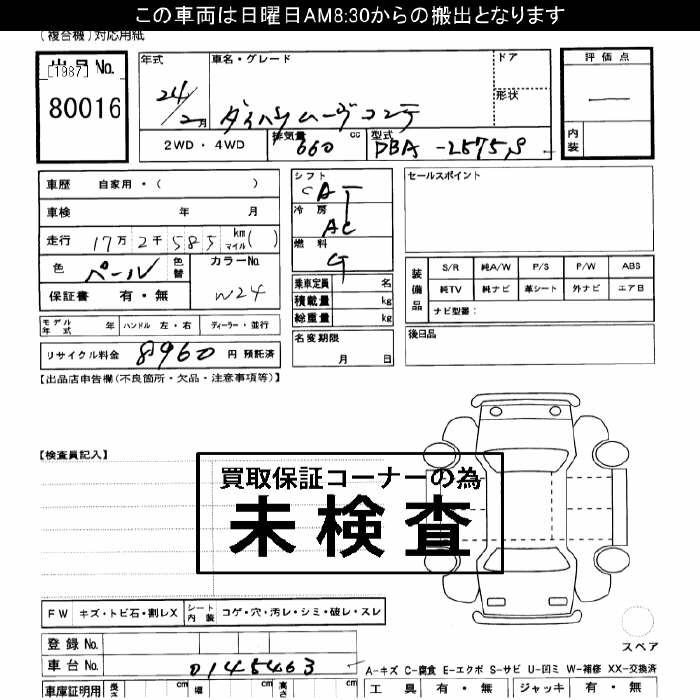 この車両は日曜日AM8:30からの搬出となります
(複合機)対応用紙
出品No.
[1987]
80016
年式
24/2月
車名・グレード
ダイハツムーヴコンテ
ドア
形状
評価点
内装
2WD・4WD
排気量
660 cc
型式
DBA-L575S
車歴 自家用・( )
車検 年 月
走行 17万2千585 km マイル( )
色 パール 色替
カラーNo.
W24
保証書 有・無
シフト
CAT
冷房
AC
燃料
G
乗車定員 名
積載量 kg
総重量 kg
セールスポイント
装備品
S/R 純A/W P/S P/W ABS
純TV 純ナビ 革シート 外ナビ エアB
ナビ型番:
モデル年式 年 ハンドル 左・右 ディーラー・並行
リサイクル料金 8960 円 預託済
名変期限
月 日
後日品
【出品店申告欄(不良箇所・欠品・注意事項等)】
【検査員記入】
買取保証コーナーの為
未検査
FW キズ・トビ石・割レX シート内装 コゲ・穴・汚レ・シミ・破レ・スレ
登録No.
車台No. 0145463
スペア
A-キズ C-腐食 E-エクボ S-サビ U-凹ミ W-補修 XX-交換済
車庫証明用 長さ cm 幅 cm 高さ cm
工具 有・無 ジャッキ 有・無